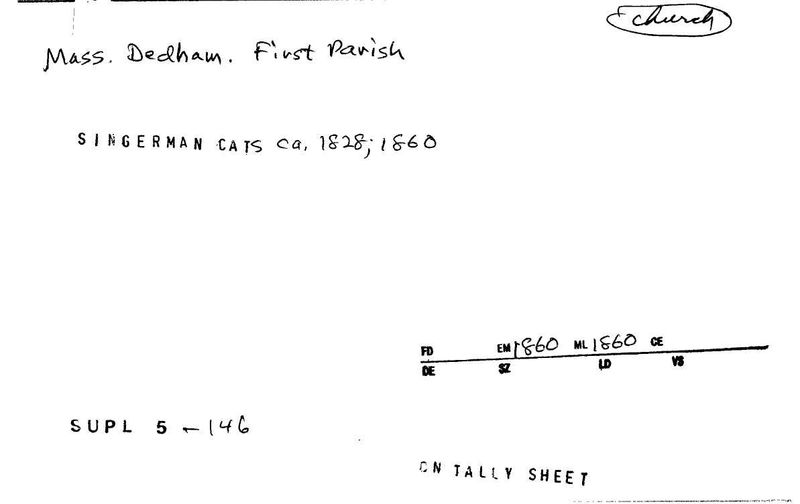 + church
Mass. Dedham. First Parish
SINGERMAN CATS ca. 1828; 1860
FD EM 1860 ML 1860 CE
DE SZ LD VS
SUPL 5 – 146
ON TALLY SHEET